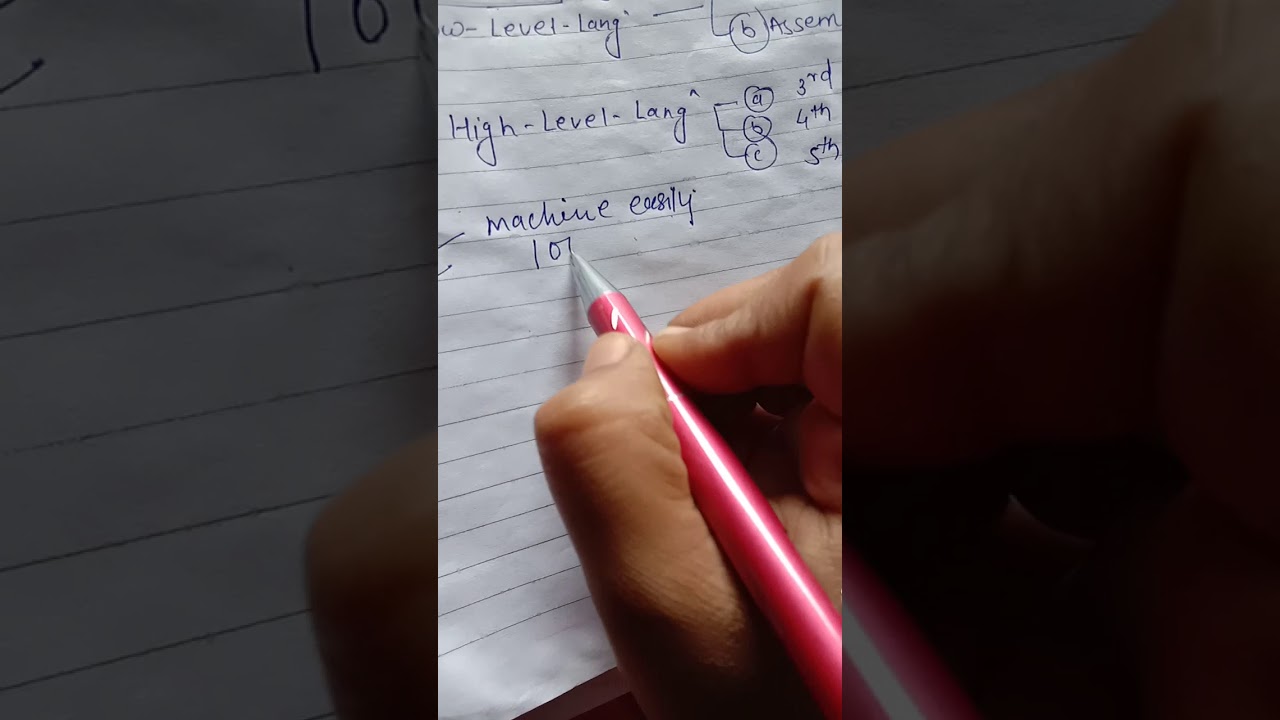 w-Level-Lang^ (b) Assem
High-Level-Lang^ (a) 3rd
(b) 4th
(c) 5th
machine easily
101